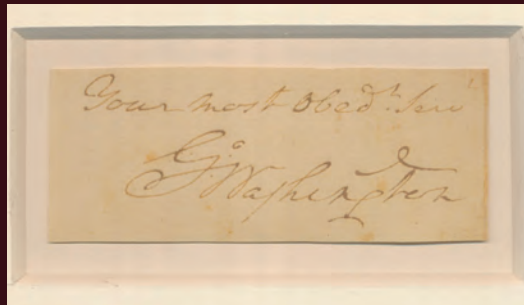 Your most Obedt. Serv
Go Washington